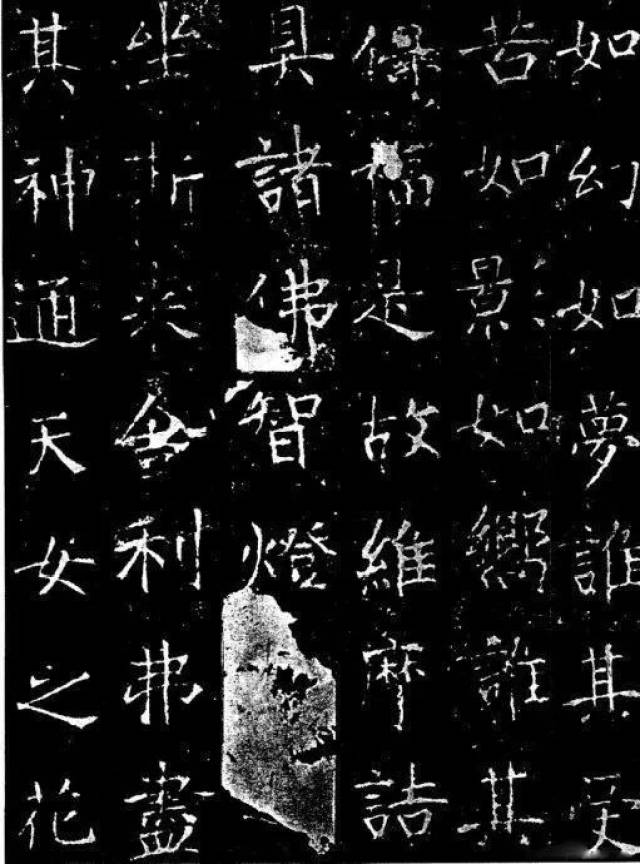 如幻如夢誰其受
苦如景如嚮誰其
福是故維摩詰
具諸佛智燈
坐折舍利弗盡
其神通天女之花